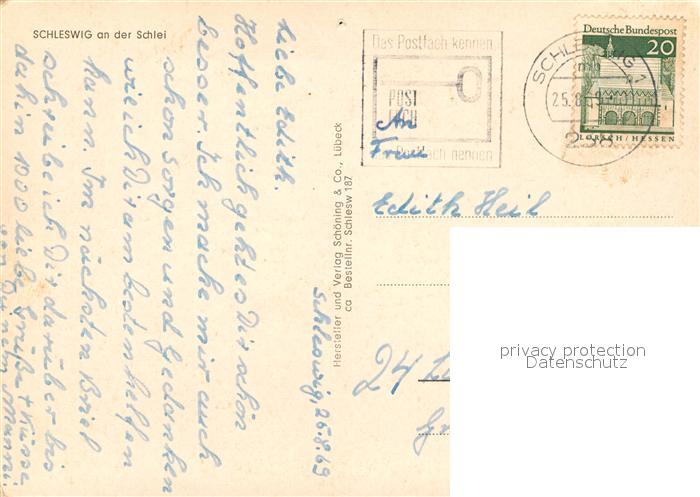 SCHLESWIG an der Schlei
Schleswig, 25.8.69
Liebe Edith.
Hoffentlich geht es Dir schon
besser. Ich mache mir auch
schon Sorgen und Gedanken
wie ich Dir am besten helfen
kann. Im nächsten Brief
schreibe ich Dir darüber bis
dahin 1000 liebe Grüße + Küsse
von Deinem Manni.
Hersteller und Verlag Schöning & Co., Lübeck
ca Bestellnr. Schlesw 187
Das Postfach kennen
POST
Postfach nennen
SCHLESWIG 1
25.8.69
238
Deutsche Bundespost
20
LORSCH/HESSEN
An
Frau
Edith Heil
24
privacy protection
Datenschutz